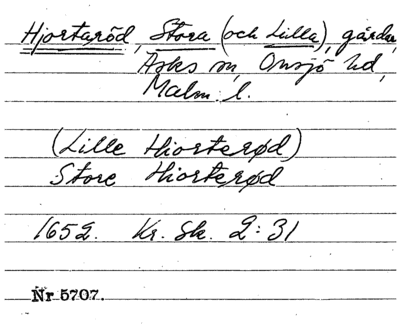 Hjortaröd, Stora (och Lilla), gårdar,
Asks sn, Onsjö hd,
Malm. l.
(Lille Hiorterød)
Store Hiorterød
1652. Kr. Sk. 2:31
Nr 5707.